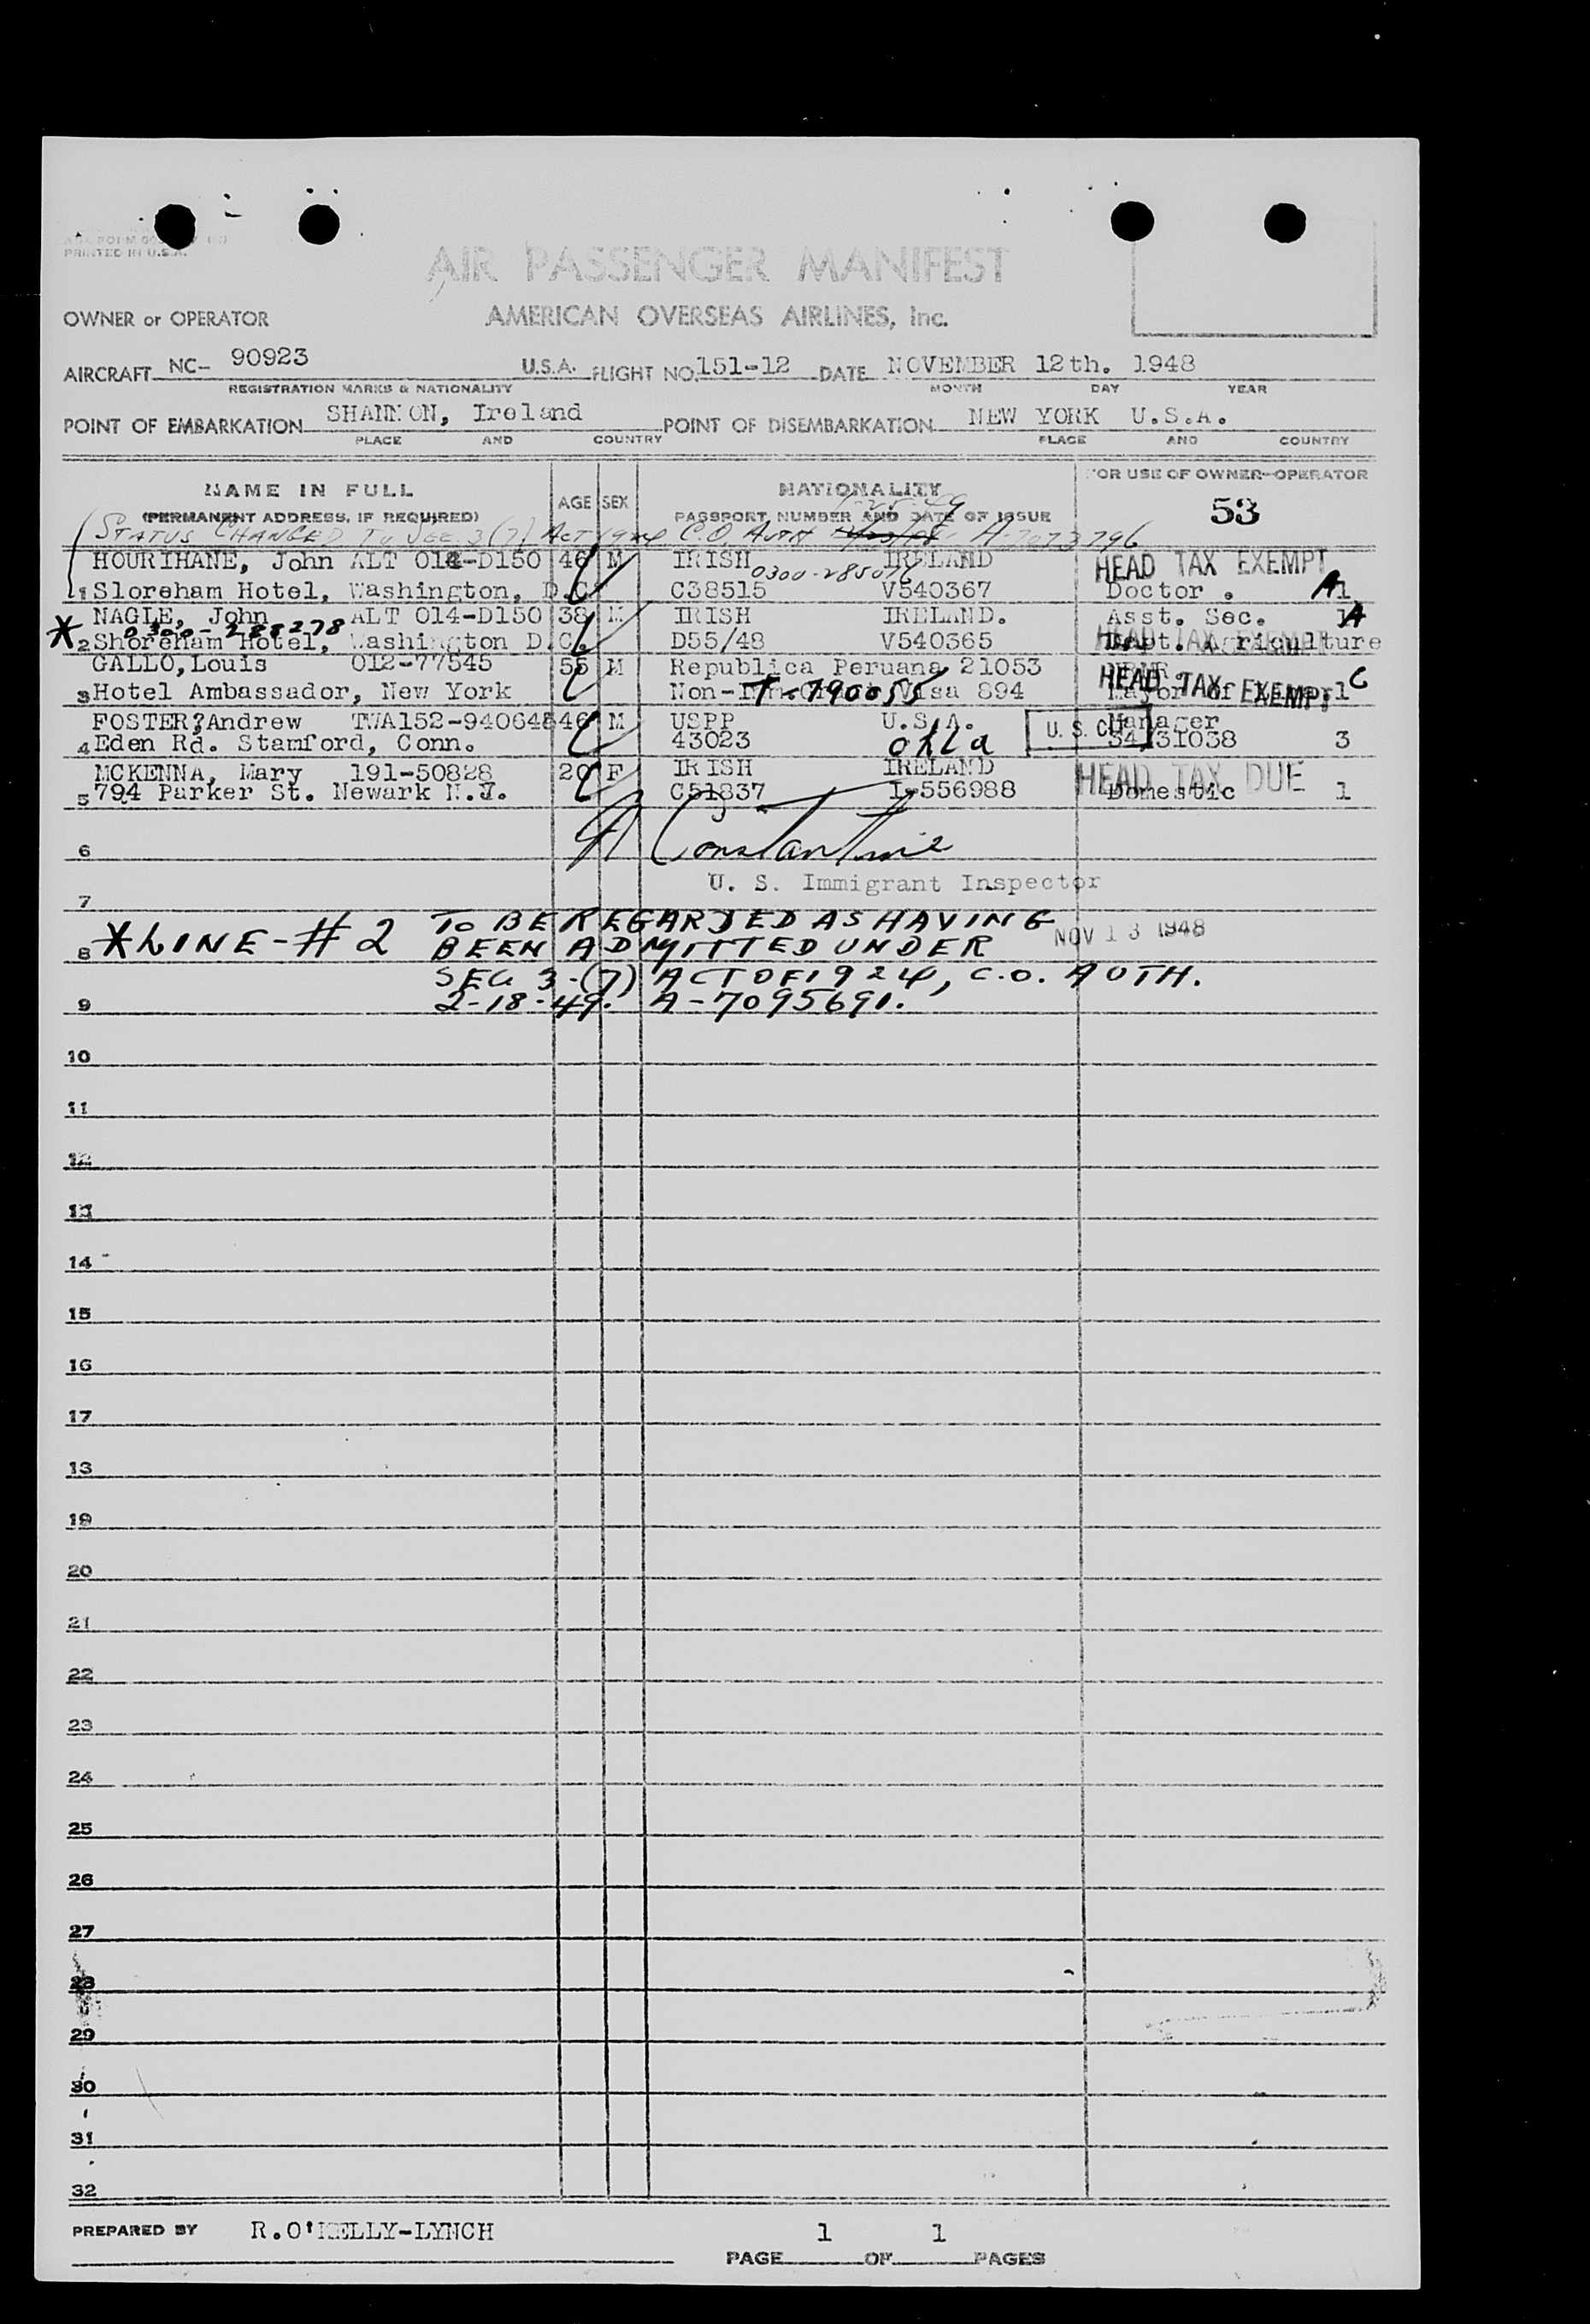 PRINTED IN U.S.A.
AIR PASSENGER MANIFEST
OWNER or OPERATOR AMERICAN OVERSEAS AIRLINES, Inc.
AIRCRAFT NC- 90923 U.S.A. FLIGHT NO. 151-12 DATE NOVEMBER 12th. 1948
REGISTRATION MARKS & NATIONALITY MONTH DAY YEAR
POINT OF EMBARKATION SHANNON, Ireland POINT OF DISEMBARKATION NEW YORK U.S.A.
PLACE AND COUNTRY PLACE AND COUNTRY
NAME IN FULL AGE SEX NATIONALITY FOR USE OF OWNER-OPERATOR
(PERMANENT ADDRESS, IF REQUIRED) PASSPORT NUMBER AND DATE OF ISSUE 53
STATUS CHANGED TO SEC 3(7) ACT 1924 C.O. AUTH A-7073796
HOURIHANE, John ALT 014-D150 46 M IRISH IRELAND HEAD TAX EXEMPT
0300-285016
1 Sloreham Hotel, Washington, D.C. C38515 V540367 Doctor . A1
NAGLE, John ALT 014-D150 38 M IRISH IRELAND. Asst. Sec. 1A
* 0300-288278
2 Shoreham Hotel, Washington D.C. D55/48 V540365 HEAD TAX EXEMPT Dept. Agriculture
GALLO, Louis 012-77545 55 M Republica Peruana 21053
3 Hotel Ambassador, New York Non- T-790055 Visa 894 HEAD TAX EXEMPT 1 C
FOSTER, Andrew TWA152-94064 46 M USPP U.S.A. U.S. CIT Manager
4 Eden Rd. Stamford, Conn. 43023 okla 34/31038 3
MCKENNA, Mary 191-50828 20 F IRISH IRELAND HEAD TAX DUE
5 794 Parker St. Newark N.J. C51837 I-556988 Domestic 1
Constantine
6
U. S. Immigrant Inspector
7
*LINE-#2 TO BE REGARDED AS HAVING
NOV 13 1948
8 BEEN ADMITTED UNDER
SEC 3-(7) ACT OF 1924, C.O. AUTH.
9 2-18-49. A-7095691.
10
11
12
13
14
15
16
17
18
19
20
21
22
23
24
25
26
27
28
29
30
31
32
PREPARED BY R.O'KELLY-LYNCH
PAGE 1 OF 1 PAGES